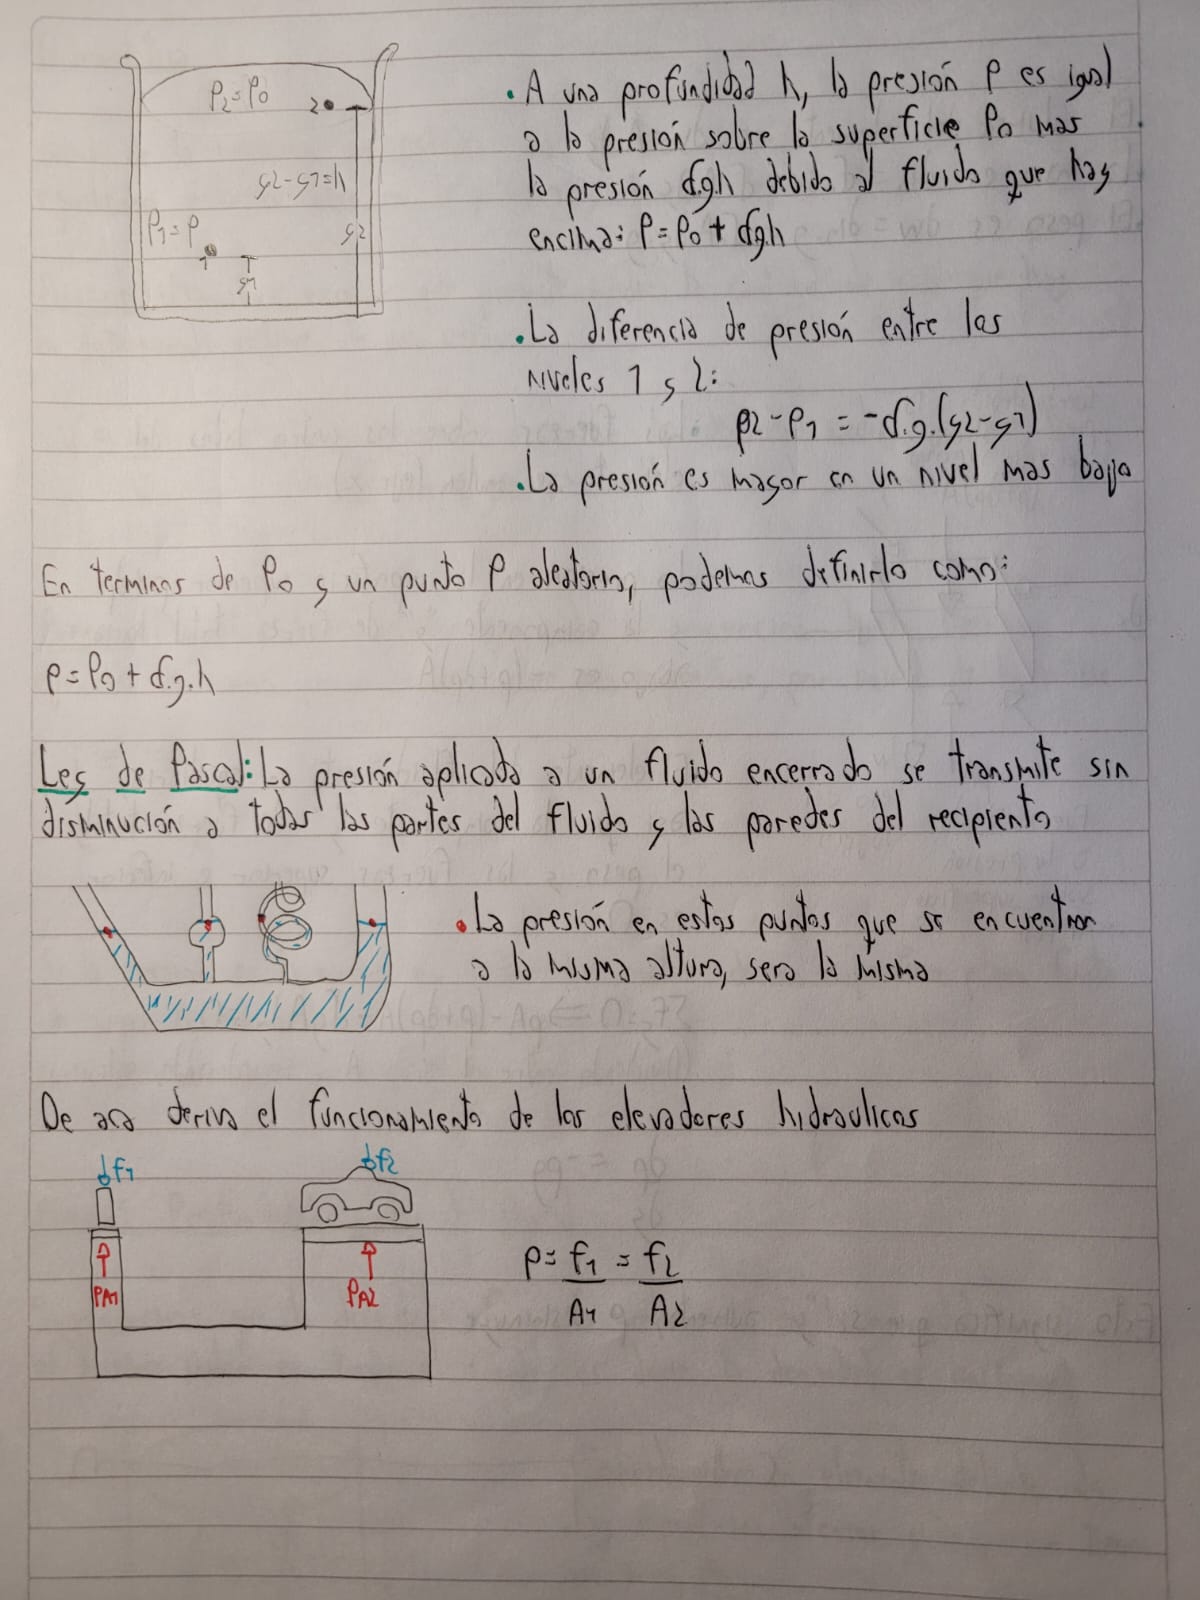 P2=P0
2
y2-y1=h
P1=P
1
y2
y1
• A una profundidad h, la presión P es igual
a la presión sobre la superficie P0 mas
la presión d.g.h debido al fluido que hay
encima: P=P0+dgh
• La diferencia de presión entre los
niveles 1 y 2:
P2-P1 = -d.g.(y2-y1)
• La presión es mayor en un nivel mas bajo
En terminos de P0 y un punto P aleatorio, podemos definirlo como:
P=P0+d.g.h
Ley de Pascal: La presión aplicada a un fluido encerrado se transmite sin
disminución a todas las partes del fluido y las paredes del recipiente
• La presión en estos puntos que se encuentran
a la misma altura, sera la misma
De aca deriva el funcionamiento de los elevadores hidraulicos
f1
f2
PA1
PA2
P= f1 = f2
A1 A2